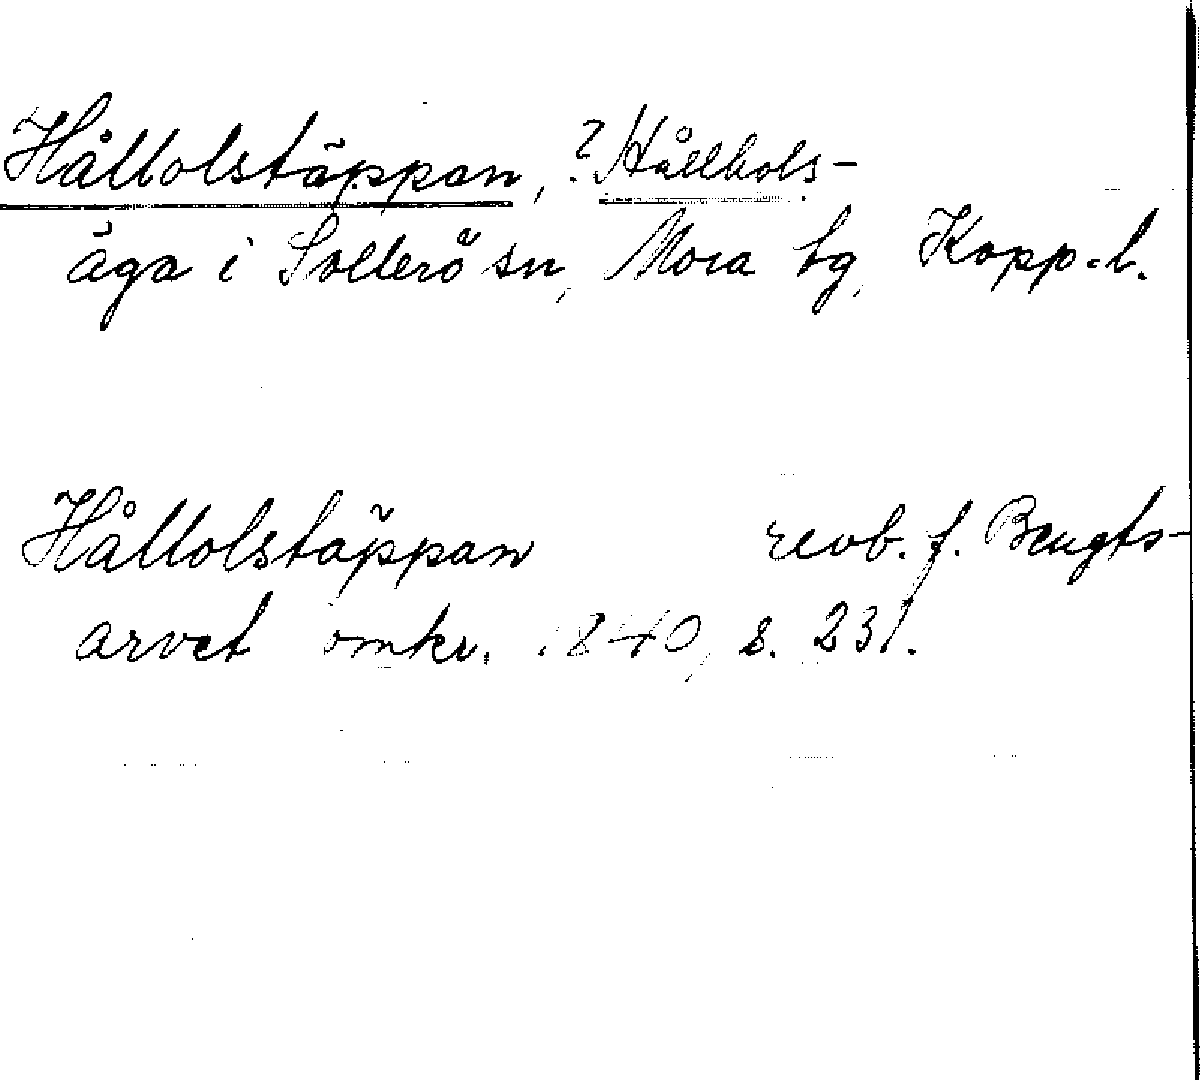 Hållolstäppan, ? Hållhols-
äga i Sollerö sn, Mora tg, Kopp. l.
Hållolstäppan revb. f. Bengts-
arvet omkr. 1840, s. 231.